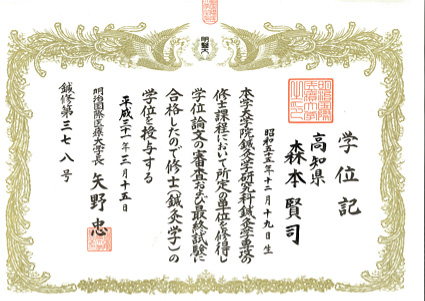 学位記
高知県
森本賢司
昭和五十五年十二月十九日生
本学大学院鍼灸学研究科鍼灸学専攻の
修士課程において所定の単位を修得し
学位論文の審査および最終試験に
合格したので修士(鍼灸学)の
学位を授与する
平成三十一年三月十五日
明治国際医療大学長 矢野忠
鍼修第三七八号